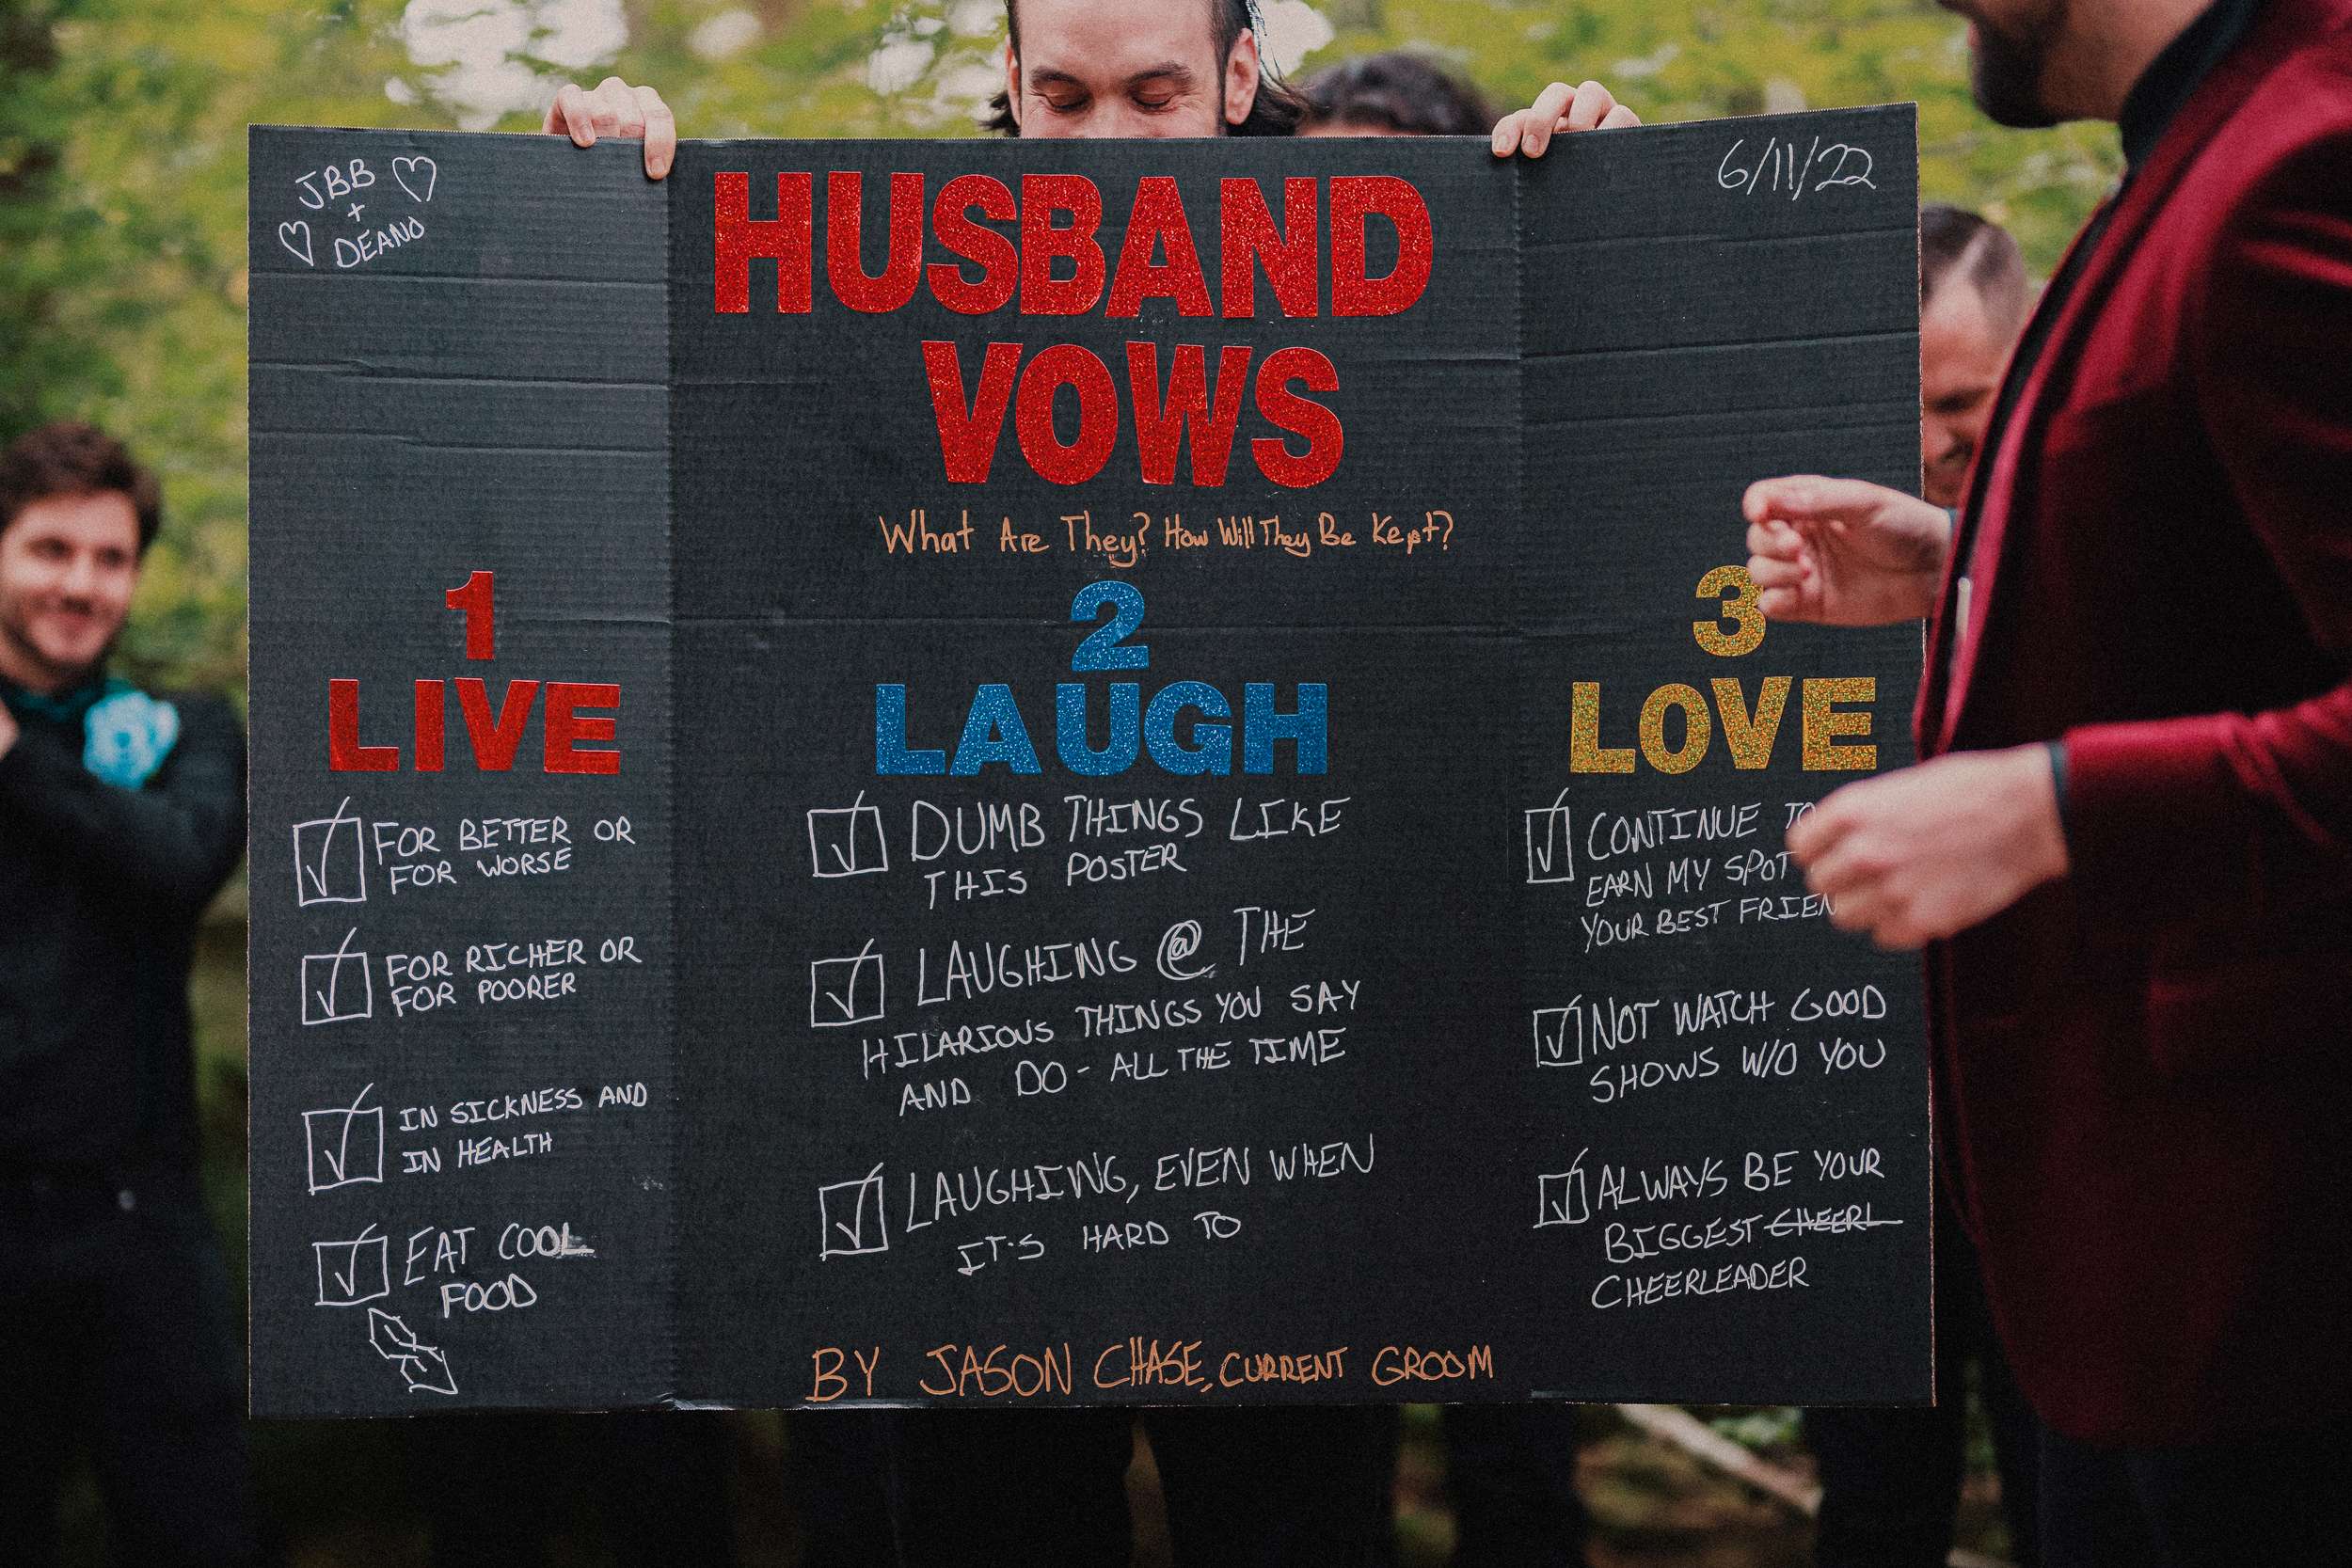 JBB
+
DEANO
6/11/22
HUSBAND
VOWS
What Are They? How Will They Be Kept?
1
LIVE
FOR BETTER OR
FOR WORSE
FOR RICHER OR
FOR POORER
IN SICKNESS AND
IN HEALTH
EAT COOL
FOOD
2
LAUGH
DUMB THINGS LIKE
THIS POSTER
LAUGHING @ THE
HILARIOUS THINGS YOU SAY
AND DO - ALL THE TIME
LAUGHING, EVEN WHEN
IT'S HARD TO
3
LOVE
CONTINUE TO
EARN MY SPOT
YOUR BEST FRIEN
NOT WATCH GOOD
SHOWS W/O YOU
ALWAYS BE YOUR
BIGGEST CHEERL
CHEERLEADER
BY JASON CHASE, CURRENT GROOM